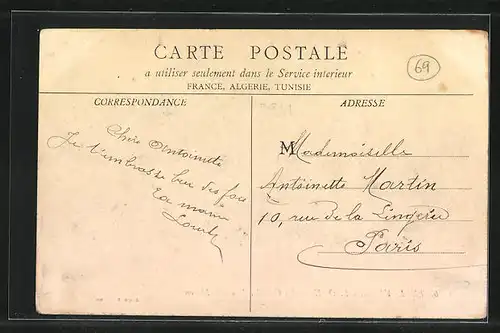 CARTE POSTALE
a utiliser seulement dans le Service interieur
FRANCE, ALGERIE, TUNISIE
69
CORRESPONDANCE
Chère Antoinette
Je t'embrasse bien des fois
Ta
ADRESSE
Mademoiselle
Antoinette Martin
10, rue de la Lingerie
Paris